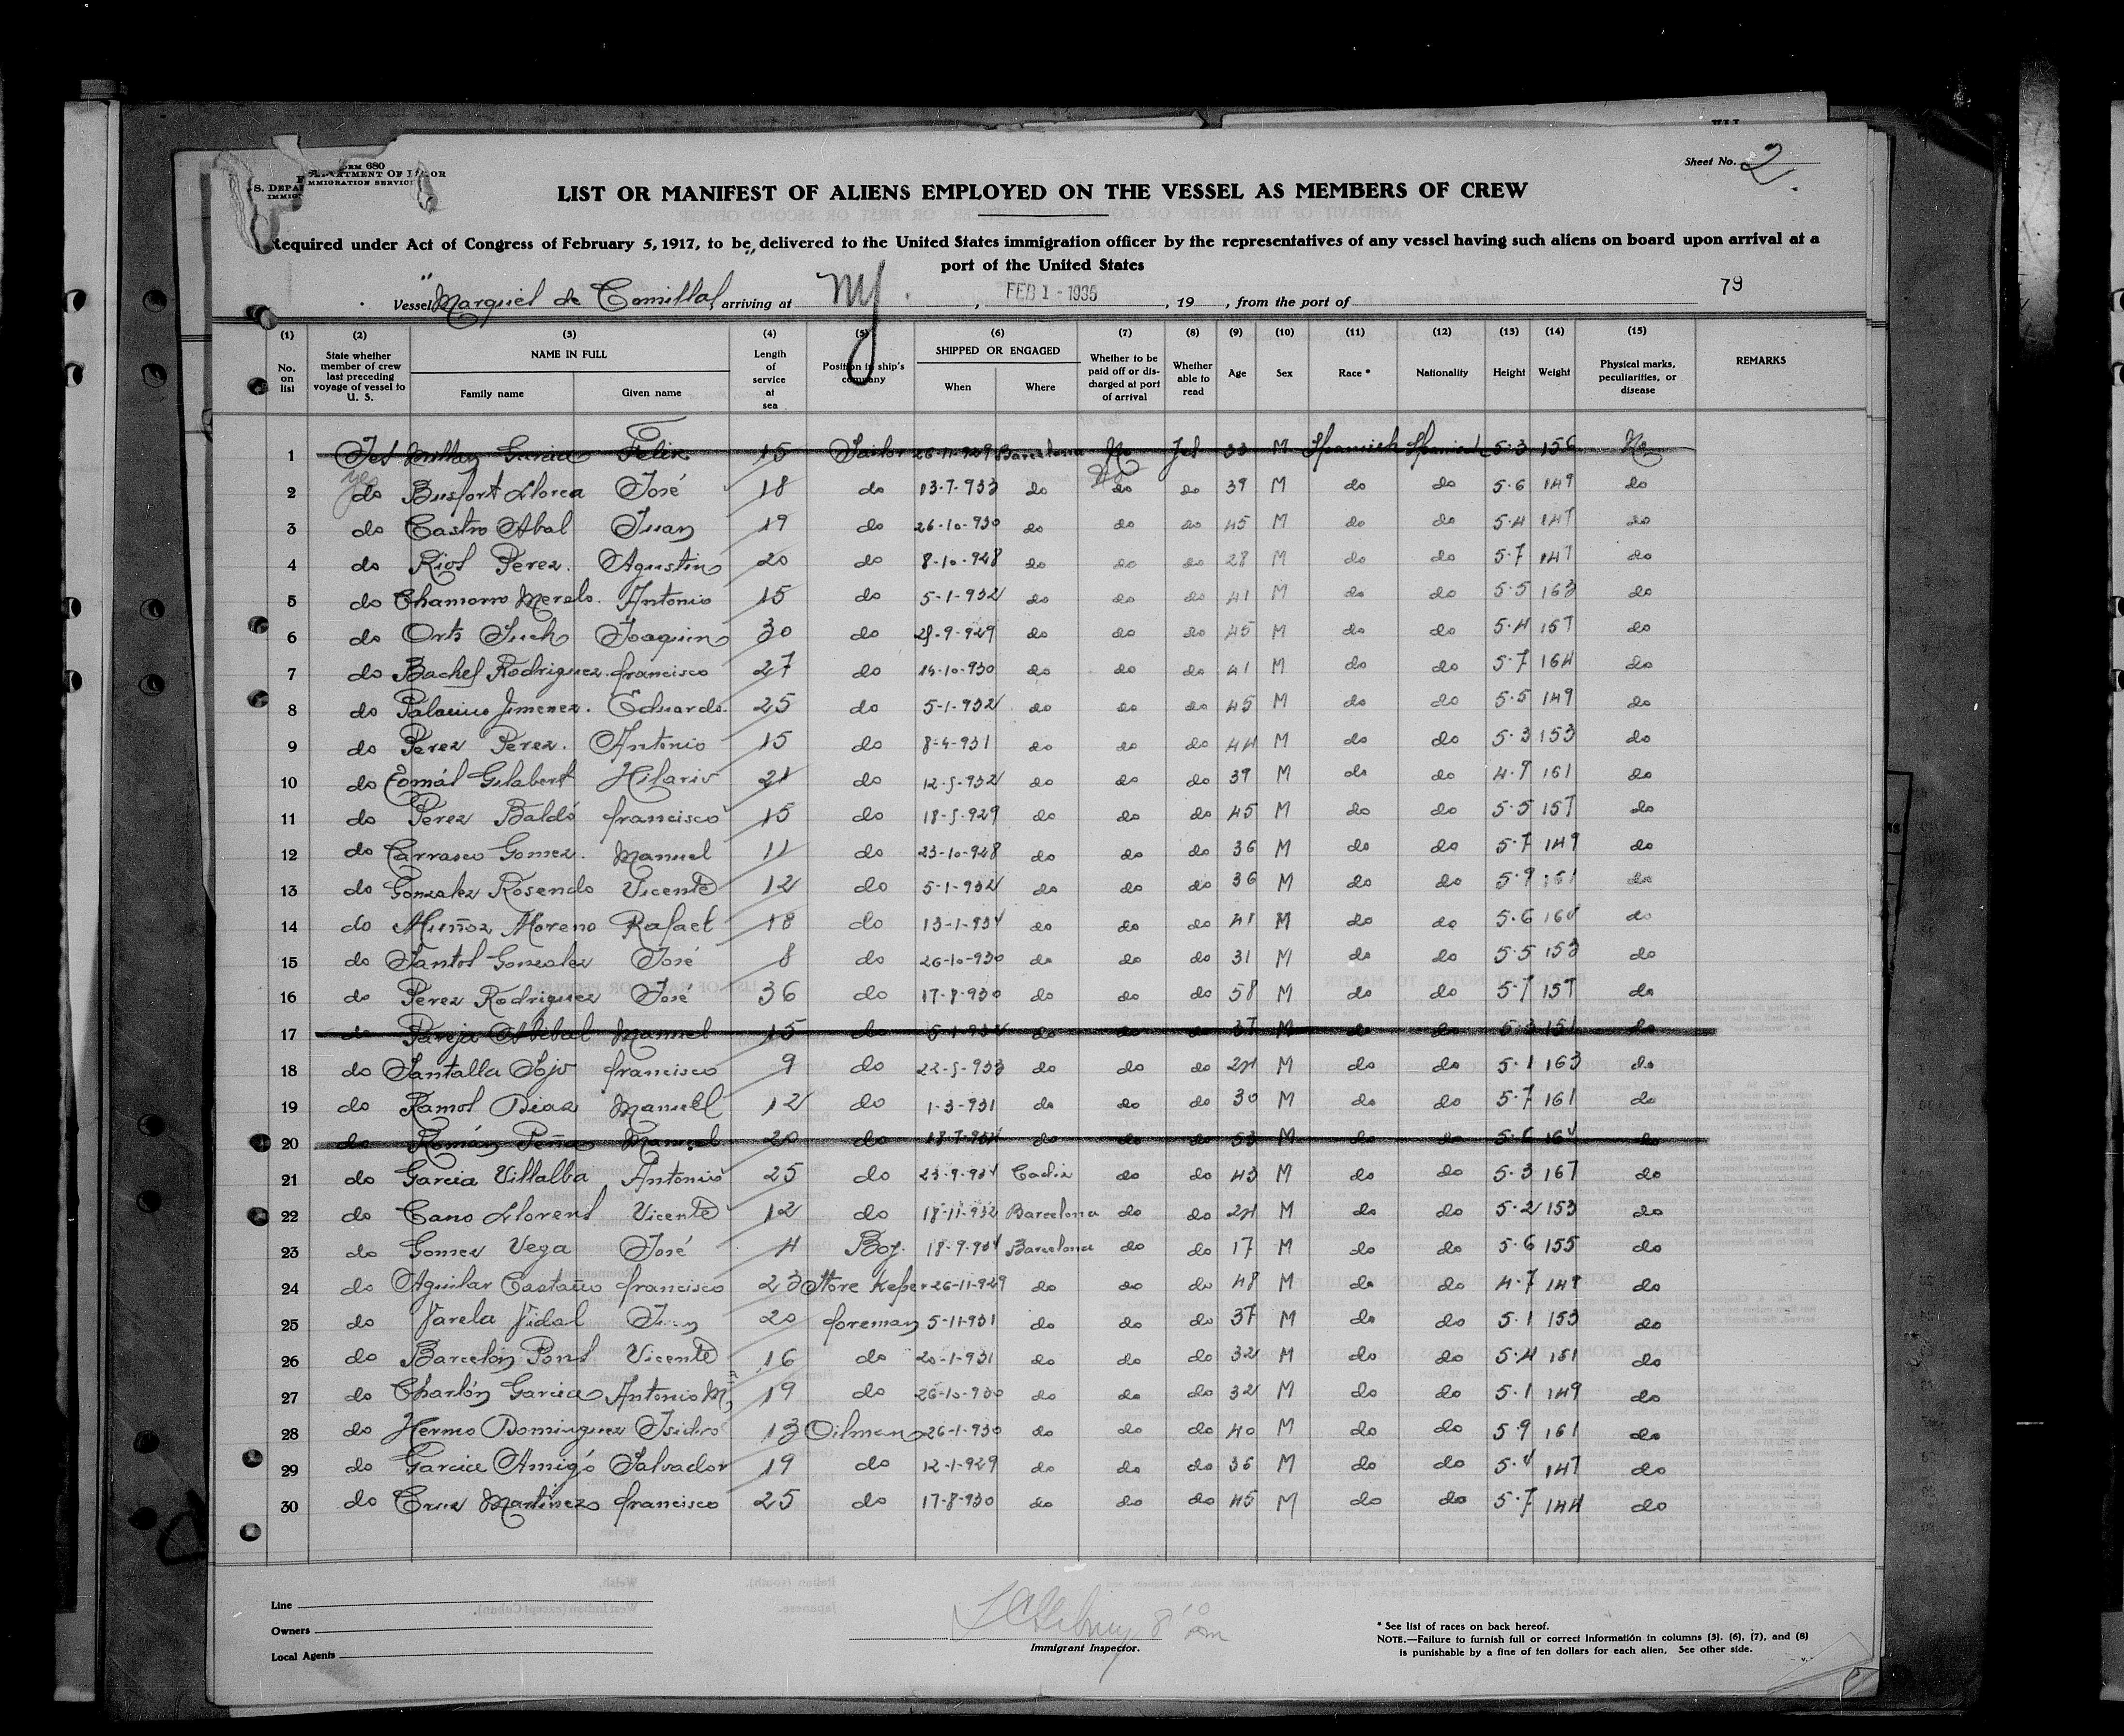 Sheet No. 2.
FORM 680
LIST OR MANIFEST OF ALIENS EMPLOYED ON THE VESSEL AS MEMBERS OF CREW
Required under Act of Congress of February 5, 1917, to be delivered to the United States immigration officer by the representatives of any vessel having such aliens on board upon arrival at a
port of the United States
79
Vessel "Marques de Comillas", arriving at NY, FEB 1 - 1935, 19 , from the port of
(1) (2) (3) (4) (5) (6) (7) (8) (9) (10) (11) (12) (13) (14) (15)
No. on list State whether member of crew last preceding voyage of vessel to U. S. NAME IN FULL Family name Given name Length of service at sea Position in ship's company SHIPPED OR ENGAGED When Where Whether to be paid off or discharged at port of arrival Whether able to read Age Sex Race * Nationality Height Weight Physical marks, peculiarities, or disease REMARKS
1 Yes Millan Garcia Felix 15 Sailor 26-11-929 Barcelona No Yes 33 M Spanish Spanish 5-3 156 No
2 yes do Busfort Llorca José 18 do 13-7-933 do No do do 39 M do do 5-6 149 do
3 do Castro Abal Juan 19 do 26-10-930 do do do 45 M do do 5-4 147 do
4 do Rios Perez. Agustin 20 do 8-10-928 do do do 28 M do do 5-7 147 do
5 do Chamorro Merelo. Antonio 15 do 5-1-932 do do do 41 M do do 5-5 163 do
6 do Orts Such Joaquin 30 do 29-9-929 do do do 45 M do do 5-4 157 do
7 do Baches Rodriguez. francisco 27 do 14-10-930 do do do 41 M do do 5-7 164 do
8 do Palacius Jimenez. Eduardo. 25 do 5-1-932 do do do 45 M do do 5-5 149 do
9 do Perez Perez. Antonio 15 do 8-4-931 do do do 44 M do do 5-3 153 do
10 do Tomás Gilabert Hilario 21 do 12-5-932 do do do 39 M do do 4-9 161 do
11 do Perez Baldó francisco 15 do 18-5-929 do do do 45 M do do 5-5 157 do
12 do Carrasco Gomez. Manuel 11 do 23-10-928 do do do 36 M do do 5-7 149 do
13 do Gonzalez Rosendo Vicente 12 do 5-1-932 do do do 36 M do do 5-9 161 do
14 do Muñoz Moreno Rafael 18 do 13-1-934 do do do 41 M do do 5-6 164 do
15 do Santos Gonzalez José 8 do 26-10-930 do do do 31 M do do 5-5 153 do
16 do Perez Rodriguez José 36 do 17-8-930 do do do 58 M do do 5-7 157 do
17 do Pareja Manuel 15 do 5-1-932 do do do 37 M do do 5-3 151 do
18 do Santalla Sojo francisco 9 do 22-5-933 do do do 24 M do do 5-1 163 do
19 do Ramos Diaz Manuel 12 do 1-3-931 do do do 30 M do do 5-7 161 do
20 do Román Peña Manuel 20 do 18-7-934 do do do 53 M do do 5-6 164 do
21 do Garcia Villalba Antonio 25 do 23-9-934 Cadiz do do 43 M do do 5-3 167 do
22 do Cano Llorens Vicente 12 do 18-11-932 Barcelona do do 24 M do do 5-2 153 do
23 do Gomez Vega José 4 Boy. 18-9-934 Barcelona do do 17 M do do 5-6 155 do
24 do Aguilar Castaño francisco 23 Store Keper 26-11-929 do do do 48 M do do 4-7 149 do
25 do Varela Vidal Juan 20 foreman 5-11-931 do do do 37 M do do 5-1 153 do
26 do Barcelón Pons Vicente 16 do 20-1-931 do do do 32 M do do 5-4 151 do
27 do Charlón Garcia Antonio Mª 19 do 26-10-930 do do do 32 M do do 5-1 149 do
28 do Hermo Dominguez Isidro 13 Oilman 26-1-930 do do do 40 M do do 5 9 161 do
29 do Garcia Amigó Salvador 19 do 12-1-929 do do do 36 M do do 5-4 147 do
30 do Cruz Martinez francisco 25 do 17-8-930 do do do 45 M do do 5-7 144 do
Line
Owners
Local Agents
Immigrant Inspector.
* See list of races on back hereof.
NOTE.—Failure to furnish full or correct information in columns (3), (6), (7), and (8)
is punishable by a fine of ten dollars for each alien. See other side.